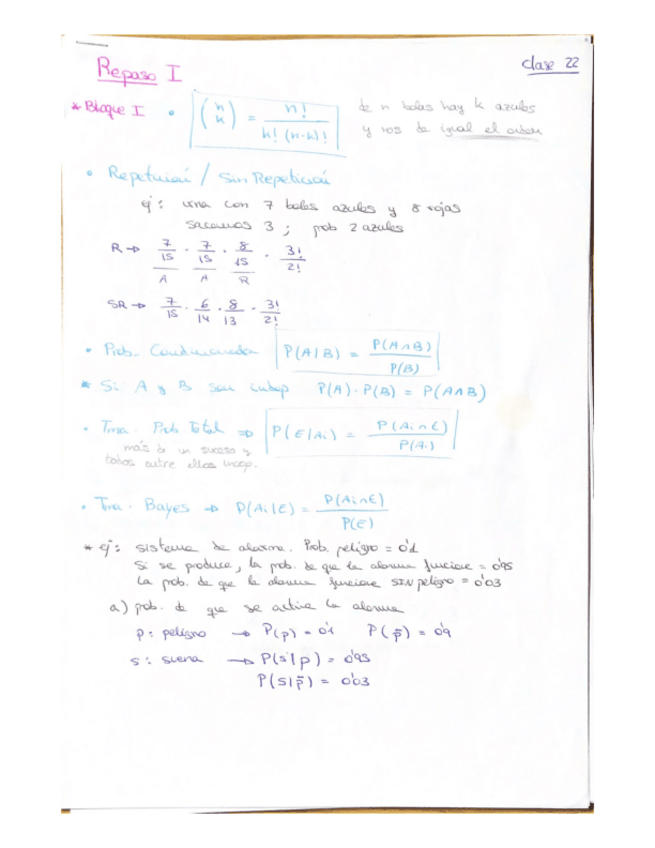 Repaso I
Clase 22
* Bloque I • (n k) = n! / k! (n-k)! de n bolas hay k azules
y nos da igual el orden
• Repetición / Sin Repetición
ej: urna con 7 bolas azules y 8 rojas
sacamos 3 ; prob 2 azules
R → 7/15 · 7/15 · 8/15 · 3!/2!
A A R
SR → 7/15 · 6/14 · 8/13 · 3!/2!
• Prob. Condicionada P(A|B) = P(A∩B) / P(B)
* Si A y B son indep P(A) · P(B) = P(A∩B)
• Tma. Prob Total ⇒ P(E|Ai) = P(Ai∩E) / P(Ai)
más de un suceso y
todos entre ellos incop.
• Tma. Bayes ⇒ P(Ai|E) = P(Ai∩E) / P(E)
* ej: sistema de alarma. Prob. peligro = 0'1
Si se produce, la prob. de que la alarma funcione = 0'95
La prob. de que la alarma funcione SIN peligro = 0'03
a) prob. de que se active la alarma
p: peligro → P(p) = 0'1 P(p̄) = 0'9
s: suena → P(s|p) = 0'95
P(s|p̄) = 0'03